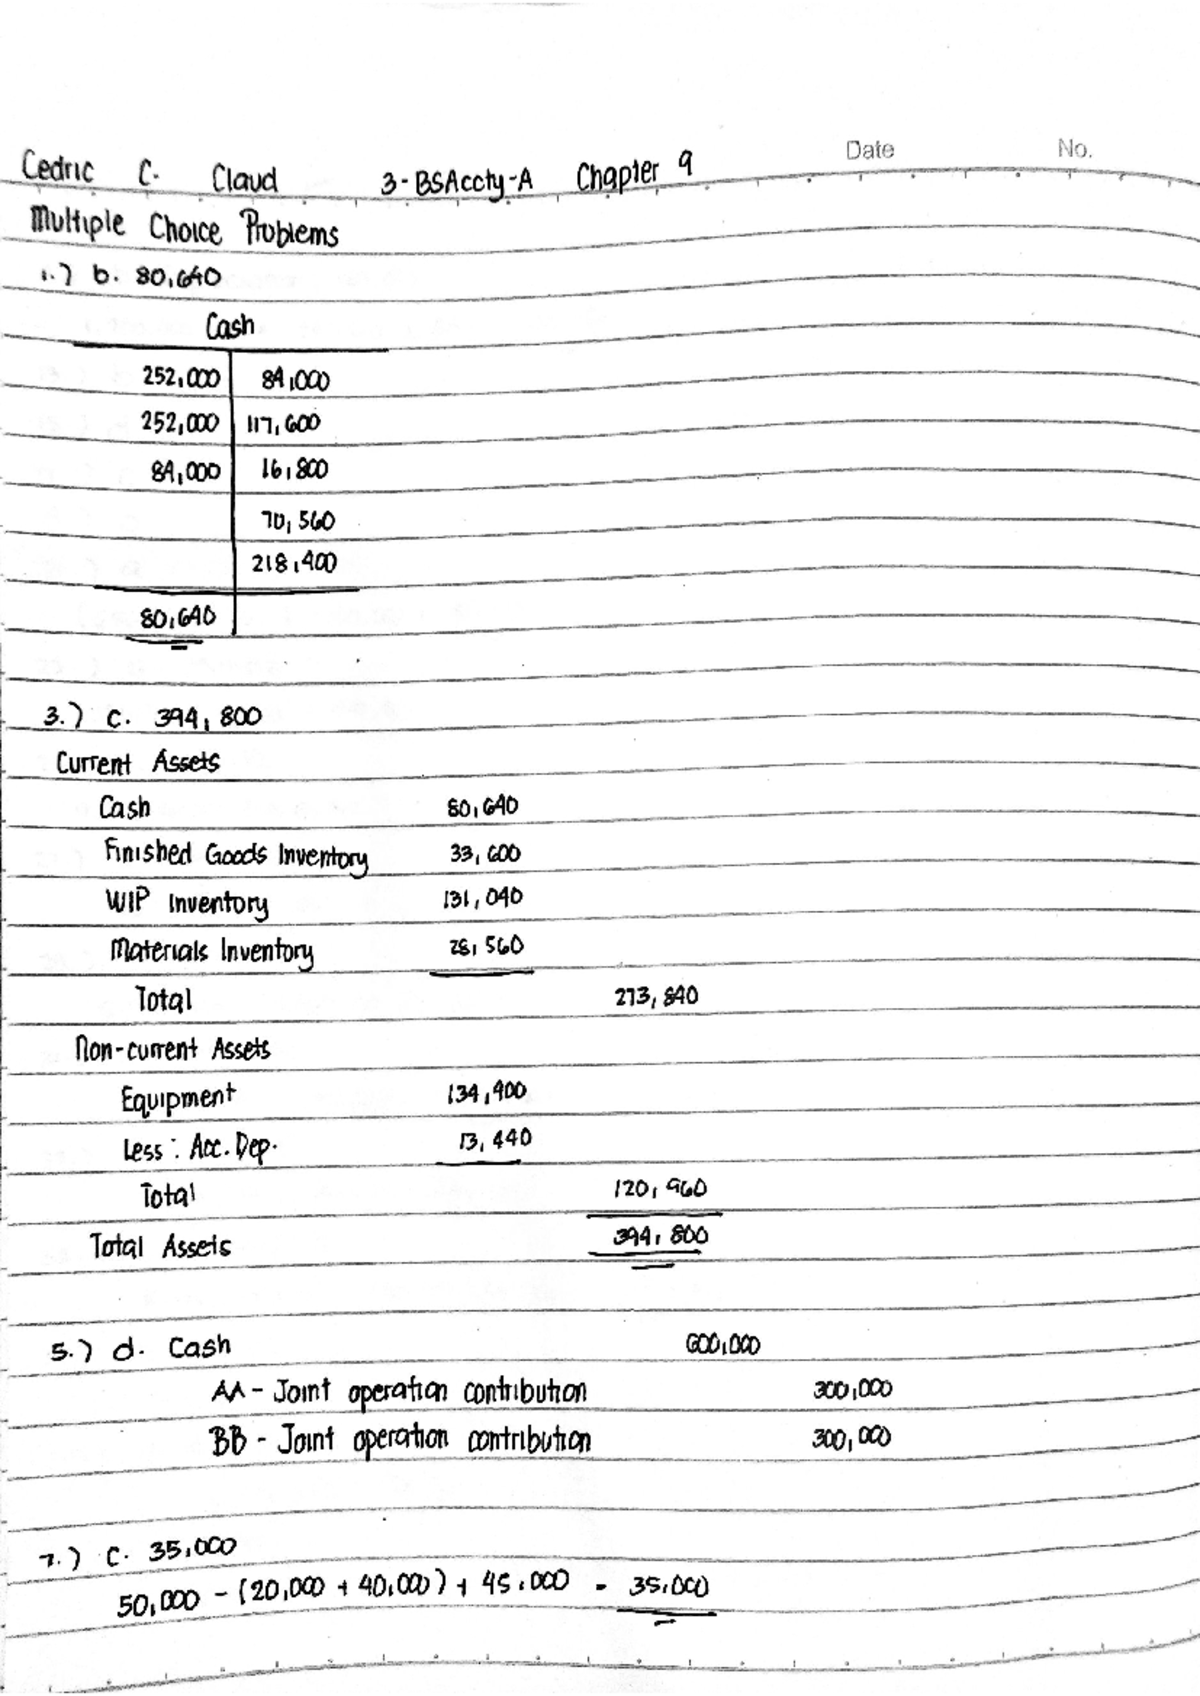 Date No.
Cedric C. Claud 3-BSAccty-A Chapter 9
Multiple Choice Problems
1.) b. 80,640
Cash
252,000 84,000
252,000 117,600
84,000 16,800
70,560
218,400
80,640
3.) c. 394,800
Current Assets
Cash 80,640
Finished Goods Inventory 33,600
WIP Inventory 131,040
Materials Inventory 28,560
Total 273,840
Non-current Assets
Equipment 134,400
Less: Acc. Dep. 13,440
Total 120,960
Total Assets 394,800
5.) d. Cash 600,000
AA - Joint operation contribution 300,000
BB - Joint operation contribution 300,000
7.) c. 35,000
50,000 - (20,000 + 40,000) + 45,000 = 35,000